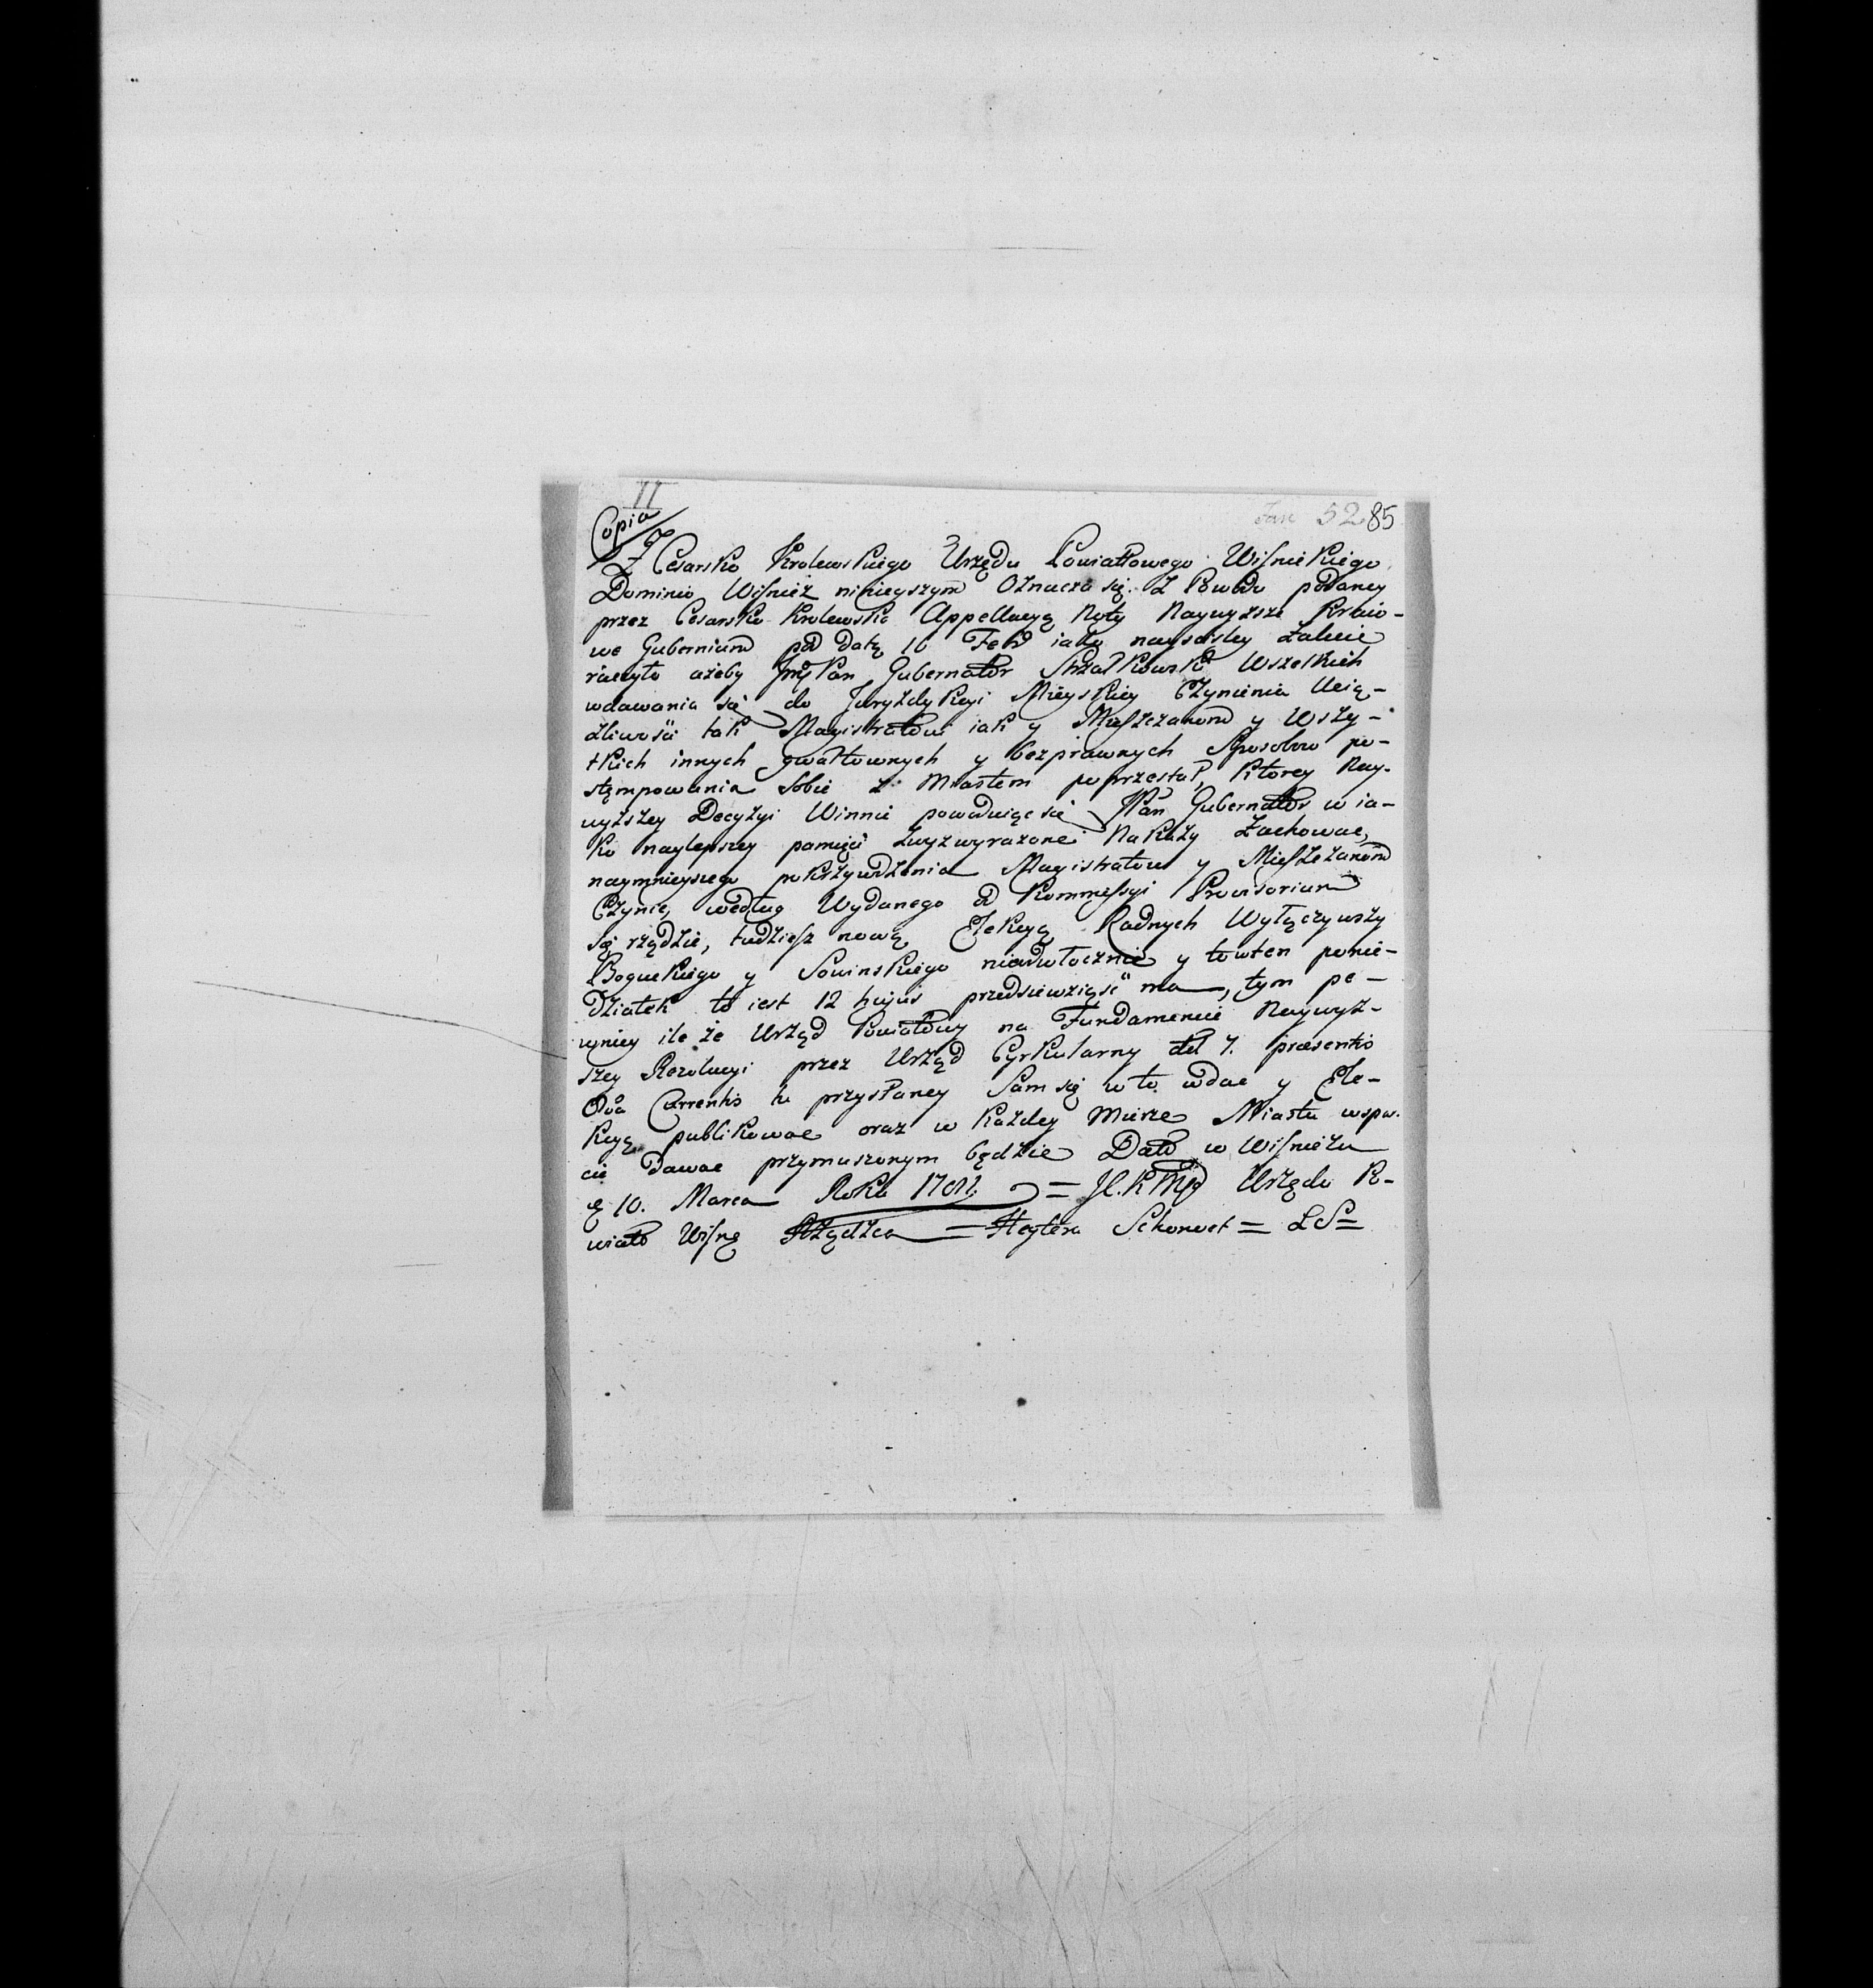 II
Jan 52 85
Copia
Z Cesarsko Krolewskiego Urzędu Powiatłowego Wiśnickiego
Dominio Wiśnicz ninieyszym Oznacza się. Z Powodu podaney
przez Cesarsko Krolewską Appellacyą Noty Naywyższe Kraio-
we Gubernium pod Datą 16 Feb iako nayscisley Zalecic
raczyło ażeby Jmć Pan Gubernator Strzałkowski Wszelkich
wdawania się do Juryzdykcyi Mieyskiey Czynienia Ucią-
żliwości tak Magistratowi iak y Mieszczanom y Wszy-
tkich innych gwałtownych y bezprawnych Sposobow po-
stęmpowania Sobie z Miastem poprzestał, Ktorey Nay-
wyższey Decyzyi Winnie powoduiąc się JPan Gubernator w ia-
ko naylepszey pamięci Zwyzwyrażone Nakazy Zachować,
naymnieyszego pokrzywdzenia Magistratowi y Mieszczanom
Czynic, według Wydanego od Kommissyi Provisorium
się rządzić, tudziesz nową Elekcyą Radnych Wyłączywszy
Boguckiego y Sowinskiego nieodwłocznie y to w ten ponie-
działek to iest 12 hujus przedsiewziąść ma, tym pe-
wniey ile że Urząd Powiatowy na Fundamencie Naywyż-
szey Rezolucyi przez Urząd Cyrkularny dd 7. præsentis
Currentis tu przysłaney Sam się w to wdać y Ele-
kcyą publikować oraz w Każdey Mierze Miastu wspar-
cie dawać przymuszonym będzie Dato w Wiśniczu
d 10. Marca Roku = Urzędu P-
wiato Wiśnę Rządzca = = LS=